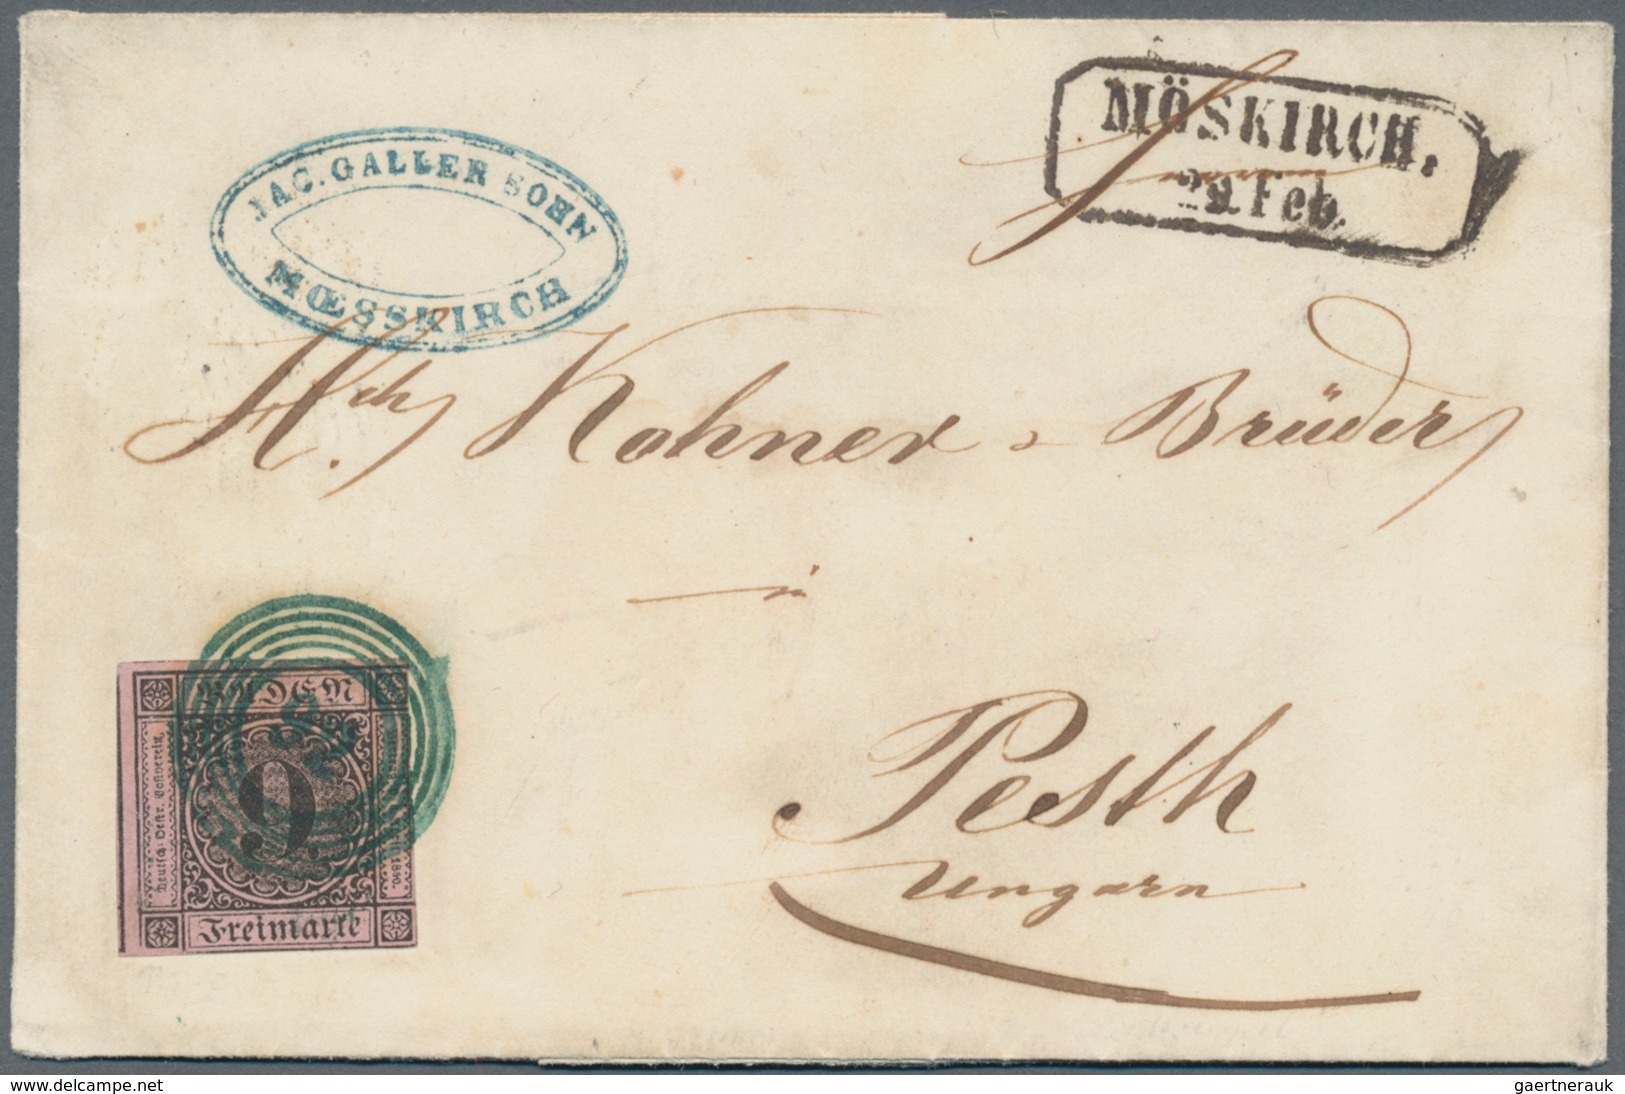 JAC. GALLER SOHN
MŒSSKIRCH
MÖSKIRCH.
29. Feb.
Kohner & Brüder
in
Pesth
Ungarn
BADEN
Deutsch-Oestr. Postverein,
9.
Freimarke
gaertnerauk